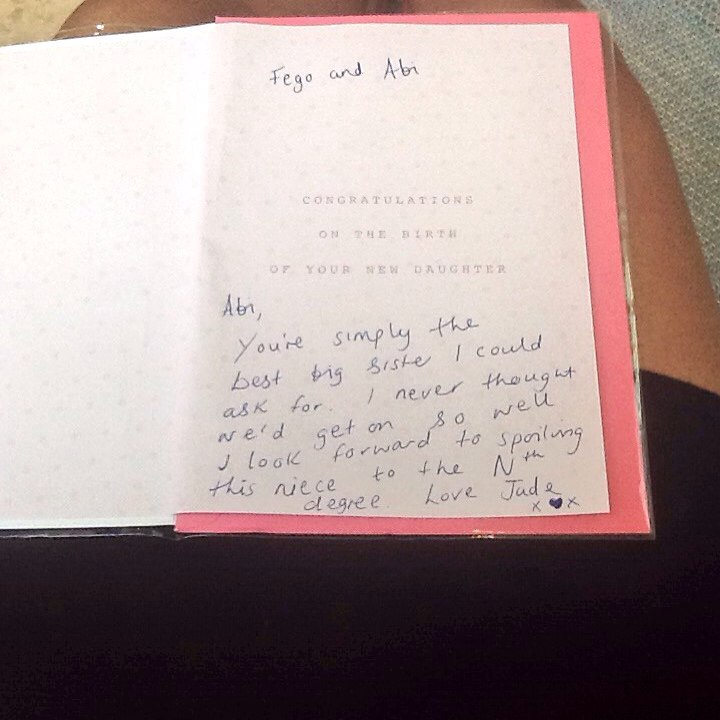 Fego and Abi
CONGRATULATIONS
ON THE BIRTH
OF YOUR NEW DAUGHTER
Abi,
You're simply the
best big sister I could
ask for. I never thought
we'd get on so well
I look forward to spoiling
this niece to the Nth
degree Love Jade
x ♥ x